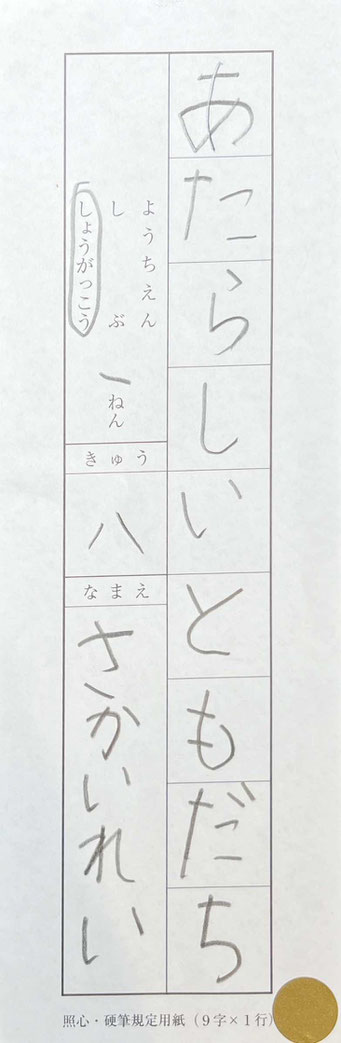 あたらしいともだち
ようちえん
しぶ
しょうがっこう
一ねん
きゅう
八
なまえ
さかいれい
照心・硬筆規定用紙(9字×1行)